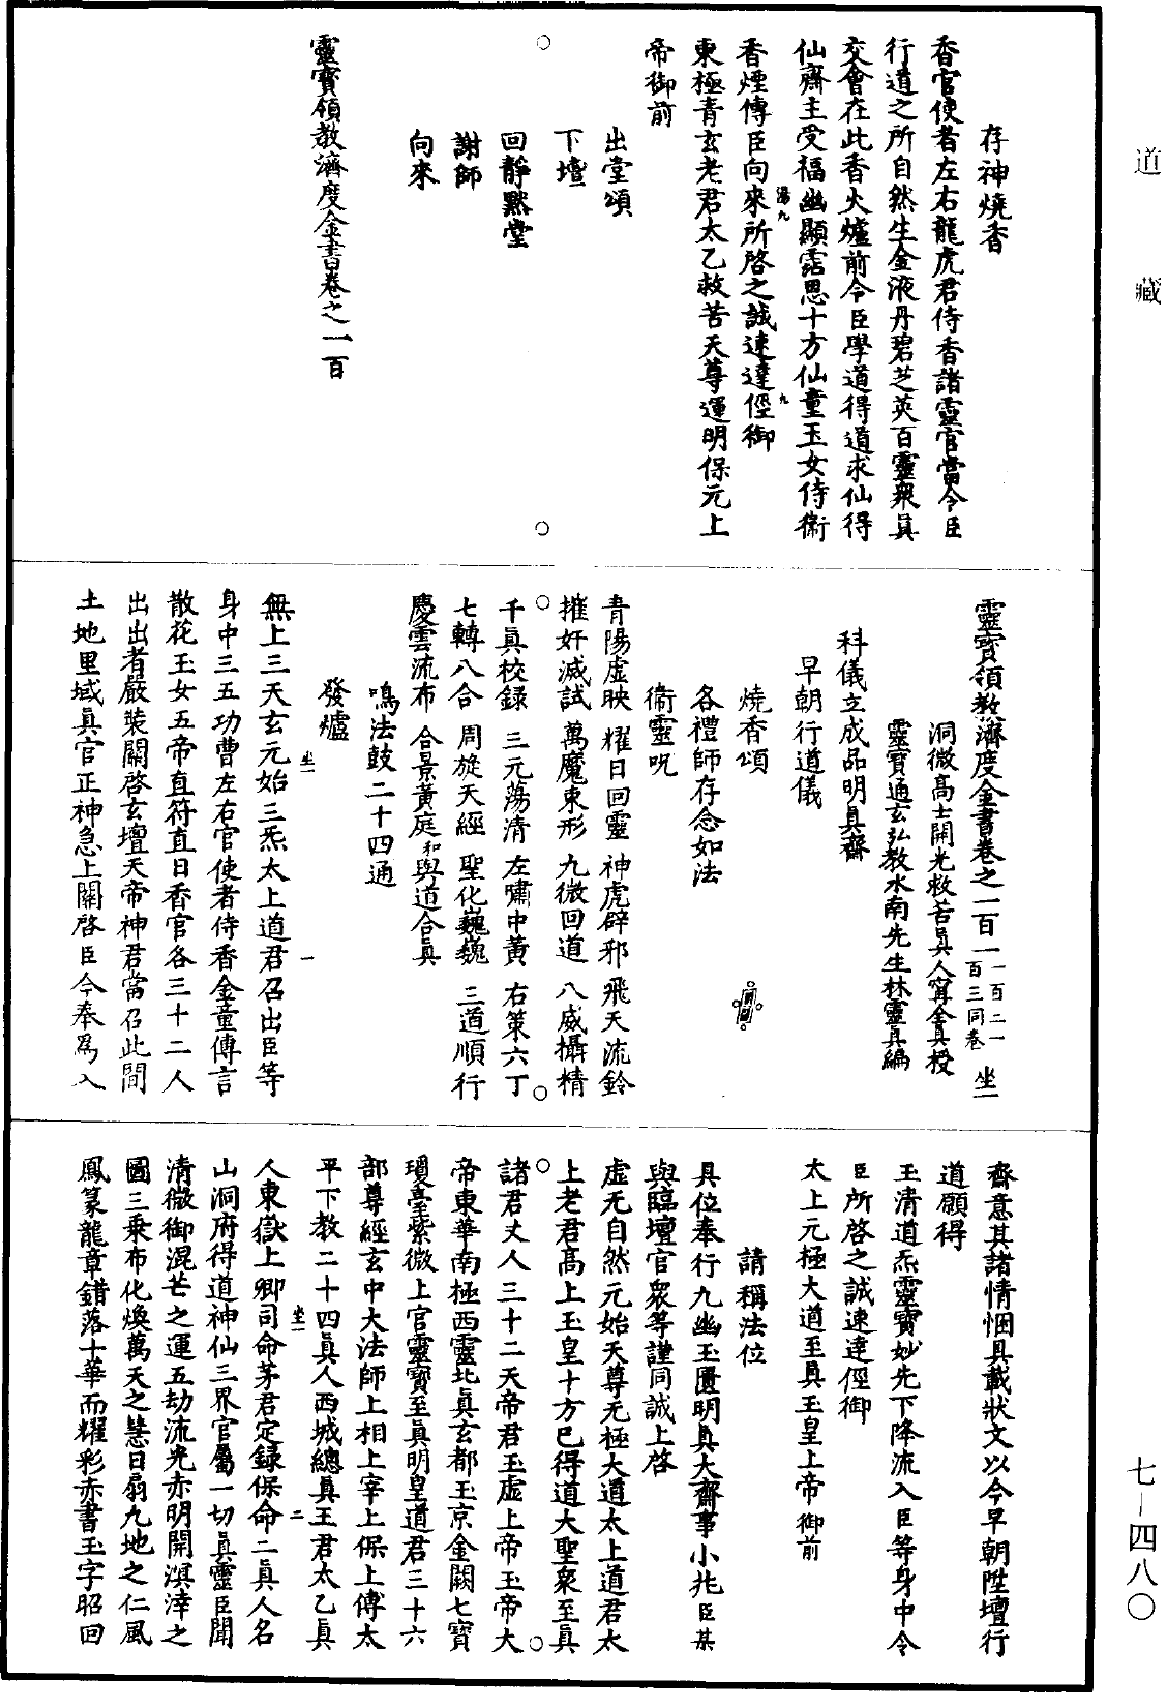 道藏
存神燒香
香官使者左右龍虎君侍香諸靈官當令臣
行道之所自然生金液丹碧芝英百靈衆眞
交會在此香火爐前令臣學道得道求仙得
仙齋主受福幽顯霑恩十方仙童玉女侍衞
香煙傳臣向來所啓之誠速達徑御
東極青玄老君太乙救苦天尊運明保元上
帝御前
出堂頌
下壇
回靜默堂
謝師
向來
靈寶領教濟度金書卷之一百
靈寶領教濟度金書卷之一百一 一百二一百三同卷 坐一
洞微高士開光救苦眞人甯全眞授
靈寶通玄弘教水南先生林靈眞編
科儀立成品明眞齋
早朝行道儀
燒香頌
各禮師存念如法
衞靈呪
青陽虛映 耀日回靈 神虎辟邪 飛天流鈴
摧奸滅試 萬魔束形 九微回道 八威攝精
千眞校錄 三元蕩清 左嘯中黃 右策六丁
七轉八合 周旋天經 聖化巍巍 三道順行
慶雲流布 合景黃庭 和與道合眞
鳴法鼓二十四通
發爐
無上三天玄元始三炁太上道君召出臣等
身中三五功曹左右官使者侍香金童傳言
散花玉女五帝直符直日香官各三十二人
出出者嚴裝關啓玄壇天帝神君當召此間
土地里域眞官正神急上關啓臣今奉爲入
齋意其諸情悃具載狀文以今早朝陞壇行
道願得
玉清道炁靈寶妙先下降流入臣等身中令
臣所啓之誠速達徑御
太上元極大道至眞玉皇上帝御前
請稱法位
具位奉行九幽玉匱明眞大齋事小兆臣某
與臨壇官衆等謹同誠上啓
虛无自然元始天尊无極大道太上道君太
上老君高上玉皇十方已得道大聖衆至眞
諸君丈人三十二天帝君玉虛上帝玉帝大
帝東華南極西靈北眞玄都玉京金闕七寶
瓊臺紫微上宮靈寶至眞明皇道君三十六
部尊經玄中大法師上相上宰上保上傅太
平下教二十四眞人西城總眞王君太乙眞
人東嶽上卿司命茅君定錄保命二眞人名
山洞府得道神仙三界官屬一切眞靈臣聞
清微御混芒之運五劫流光赤明開溟涬之
圖三乘布化煥萬天之慧日扇九地之仁風
鳳篆龍章錯落十華而耀彩赤書玉字昭回
七－四八〇